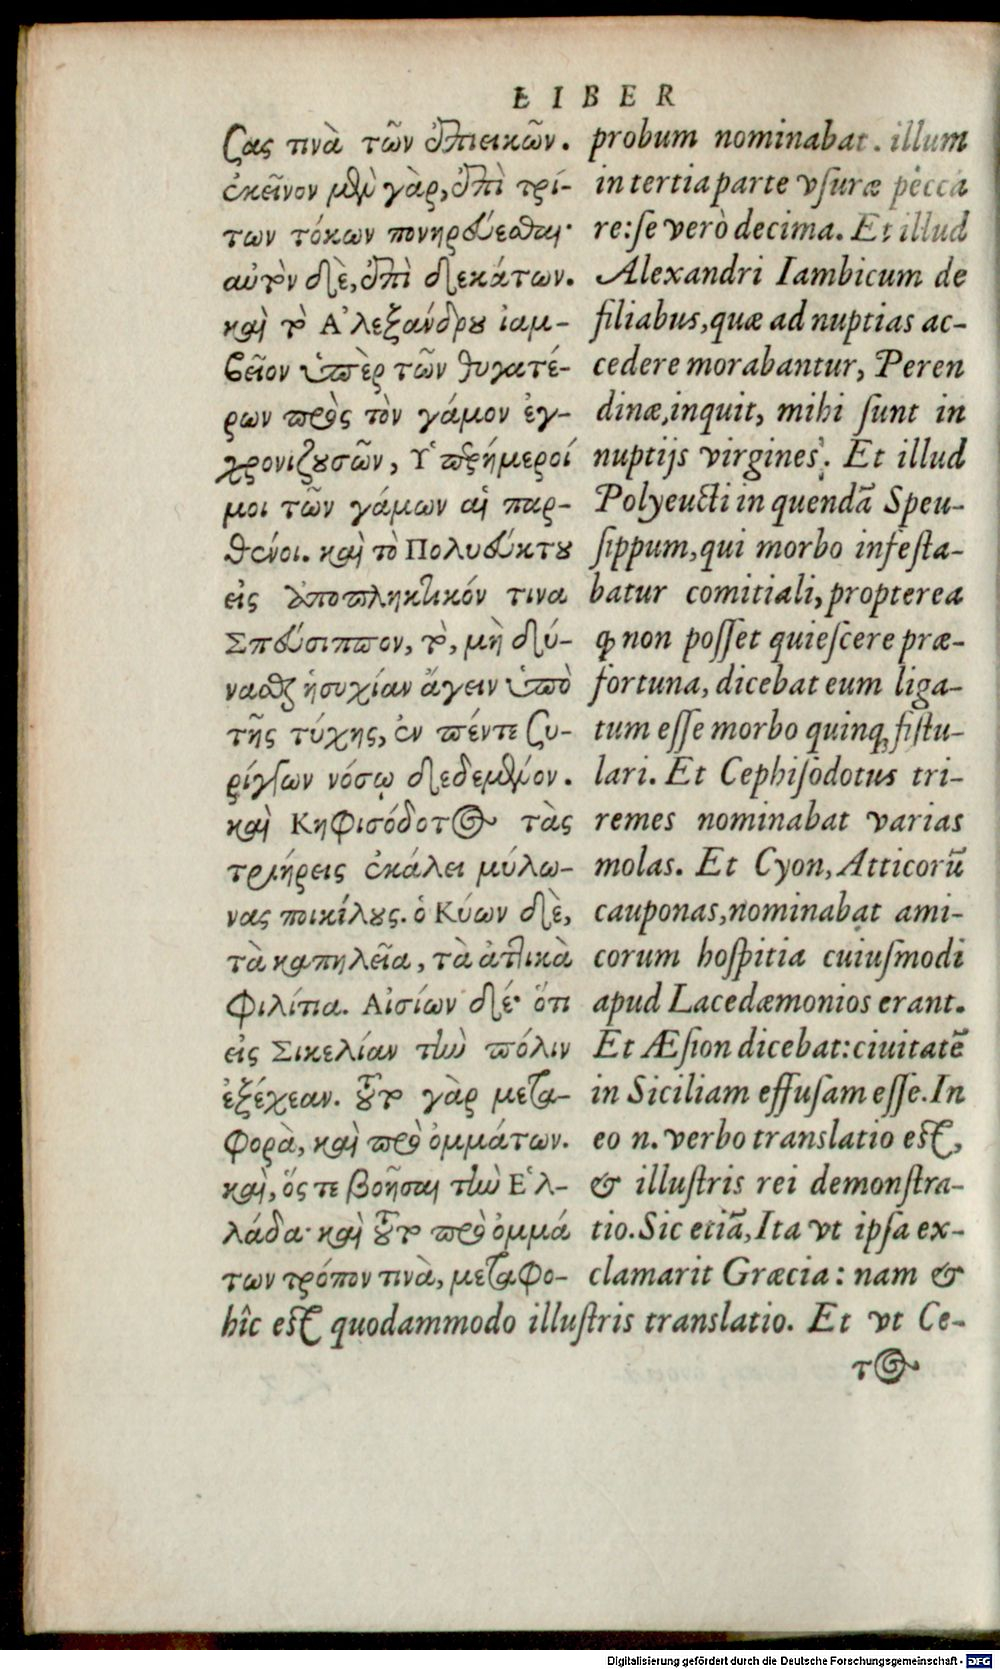 LIBER
ζας τινὰ τῶν ἐπιεικῶν.
ἐκεῖνον μὲν γὰρ, ἐπὶ τρί-
των τόκων πονηρεύεσθαι·
αὐτὸν δὲ, ἐπὶ δεκάτων.
καὶ τὸ Ἀλεξάνδρου ἰαμ-
βεῖον ὑπὲρ τῶν θυγατέ-
ρων πρὸς τὸν γάμον ἐγ-
χρονιζουσῶν, Ὑπερήμεροί
μοι τῶν γάμων αἱ παρ-
θένοι. καὶ τὸ Πολυεύκτου
εἰς ἀποπληκτικόν τινα
Σπεύσιππον, τὸ, μὴ δύ-
νασθαι ἡσυχίαν ἄγειν ὑπὸ
τῆς τύχης, ἐν πέντε συ-
ρίγγων νόσῳ δεδεμένον.
καὶ Κηφισόδοτος τὰς
τριήρεις ἐκάλει μύλω-
νας ποικίλους. ὁ Κύων δὲ,
τὰ καπηλεῖα, τὰ ἀττικὰ
Φιλίτια. Αἰσίων δέ· ὅτι
εἰς Σικελίαν τὴν πόλιν
ἐξέχεαν. τοῦτο γὰρ μετα-
φορὰ, καὶ πρὸ ὀμμάτων.
καὶ, ὅς τε βοῆσαι τὴν Ἑλ-
λάδα· καὶ τοῦτο πρὸ ὀμμά
των τρόπον τινὰ, μεταφο-
probum nominabat. illum
in tertia parte vsuræ pecca
re: se verò decima. Et illud
Alexandri Iambicum de
filiabus, quæ ad nuptias ac-
cedere morabantur, Peren
dinæ, inquit, mihi sunt in
nuptijs virgines. Et illud
Polyeucti in quendã Speu-
sippum, qui morbo infesta-
batur comitiali, propterea
ꝙ non posset quiescere præ-
fortuna, dicebat eum liga-
tum esse morbo quinqꝫ fistu-
lari. Et Cephisodotus tri-
remes nominabat varias
molas. Et Cyon, Atticorũ
cauponas, nominabat ami-
corum hospitia cuiusmodi
apud Lacedæmonios erant.
Et Æsion dicebat: ciuitatẽ
in Siciliam effusam esse. In
eo n. verbo translatio est,
& illustris rei demonstra-
tio. Sic etiã, Ita vt ipsa ex-
clamarit Græcia: nam &
hîc est quodammodo illustris translatio. Et vt Ce-
τος
Digitalisierung gefördert durch die Deutsche Forschungsgemeinschaft - DFG